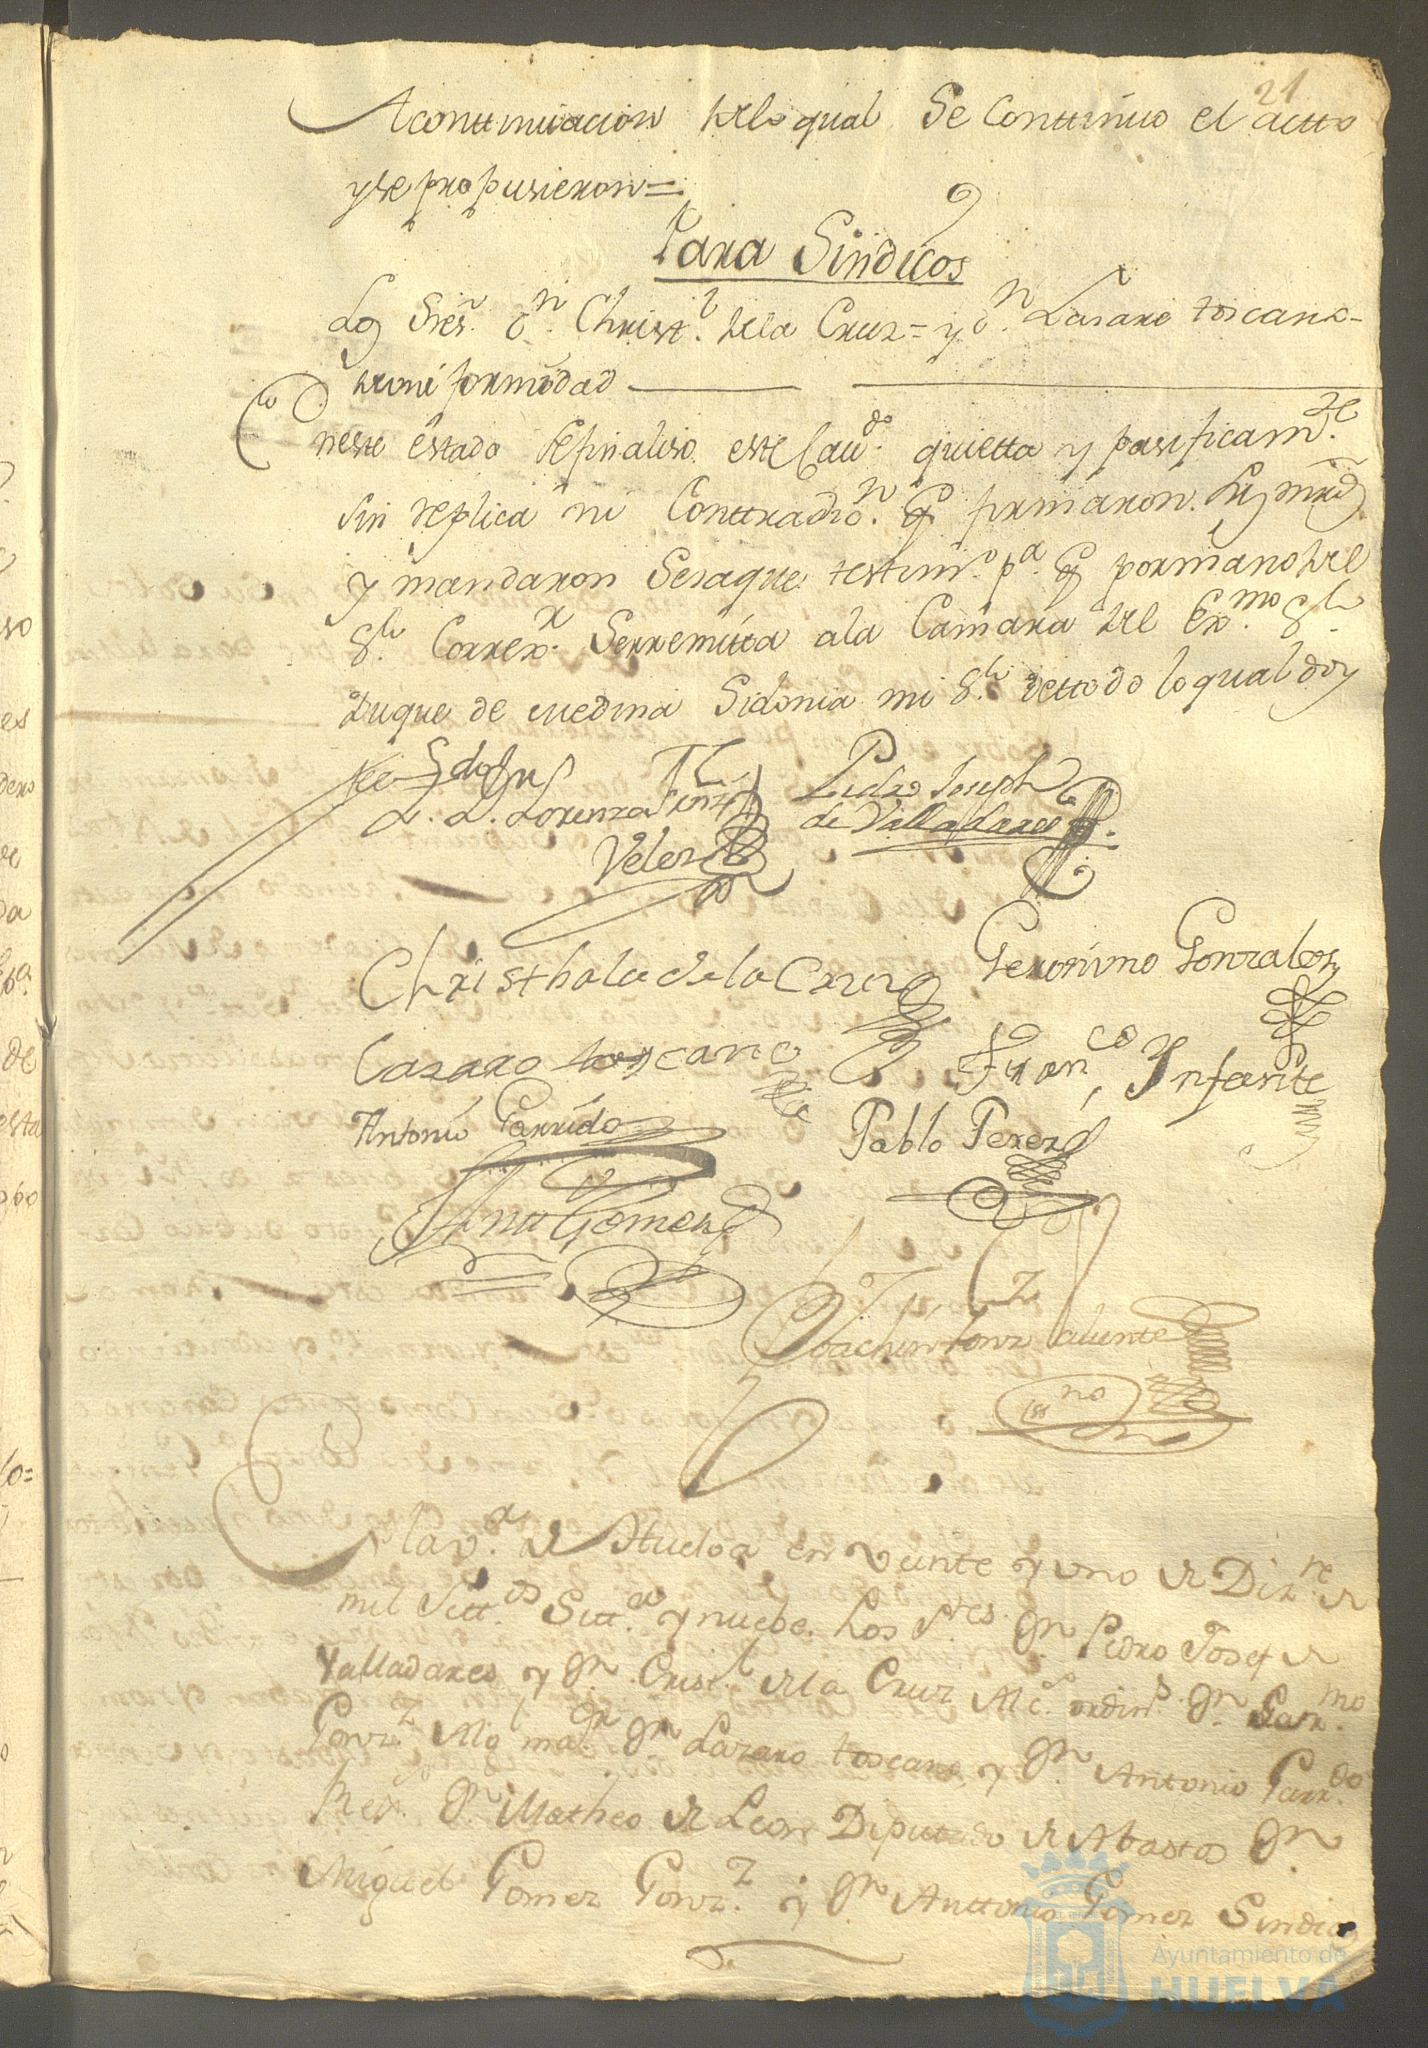 21
A conttinuacion de lo qual Se Conttinuo el actto
y se propusieron=
Para Sindicos
Los Sres. Dn. Christl. de la Cruz= y Dn. Lasaro toscano-
de uniformidad
neste estado se finaliso este Cavdo. quietta y pasificamte.
sin replica ni Conttradicn. q firmaron. Las mrds
y mandaron Se saque testimo. pa. q por mano del
Sr. Correxr. Se rremitta a la Camara del Exmo. Sr.
Duque de Medina Sidonia mi Sr. de ttodo lo qual doy
fee
L. D. Lorenzo
Velez
Pedro Joseph
de Valladares
Christhobal de la Cruz
Geronimo Gonzales
Lazaro toscano
Franco Ynfante
Antonio Garrido
Pablo Perez
Antt Gomez
Joachin Gonz Valiente
Esno
En la va. de Huelva en veinte y uno de Dizre. de
mil Settos Setta. y nuebe. Los Sres Dn. Pedro Josef de
Valladares y Dn. Cristl. de la Cruz Alcs. ordins. Dn. Germo
Gonzz. Alg mar Dn. Lazaro toscano, y Dn. Antonio Garrdo.
Rexs. Dn. Matheo de Leon Diputado de Abastos Dn.
Miguel Gomez Gonzz. y Dn. Anttonio Gomez Sindico
Ayuntamiento de
HUELVA